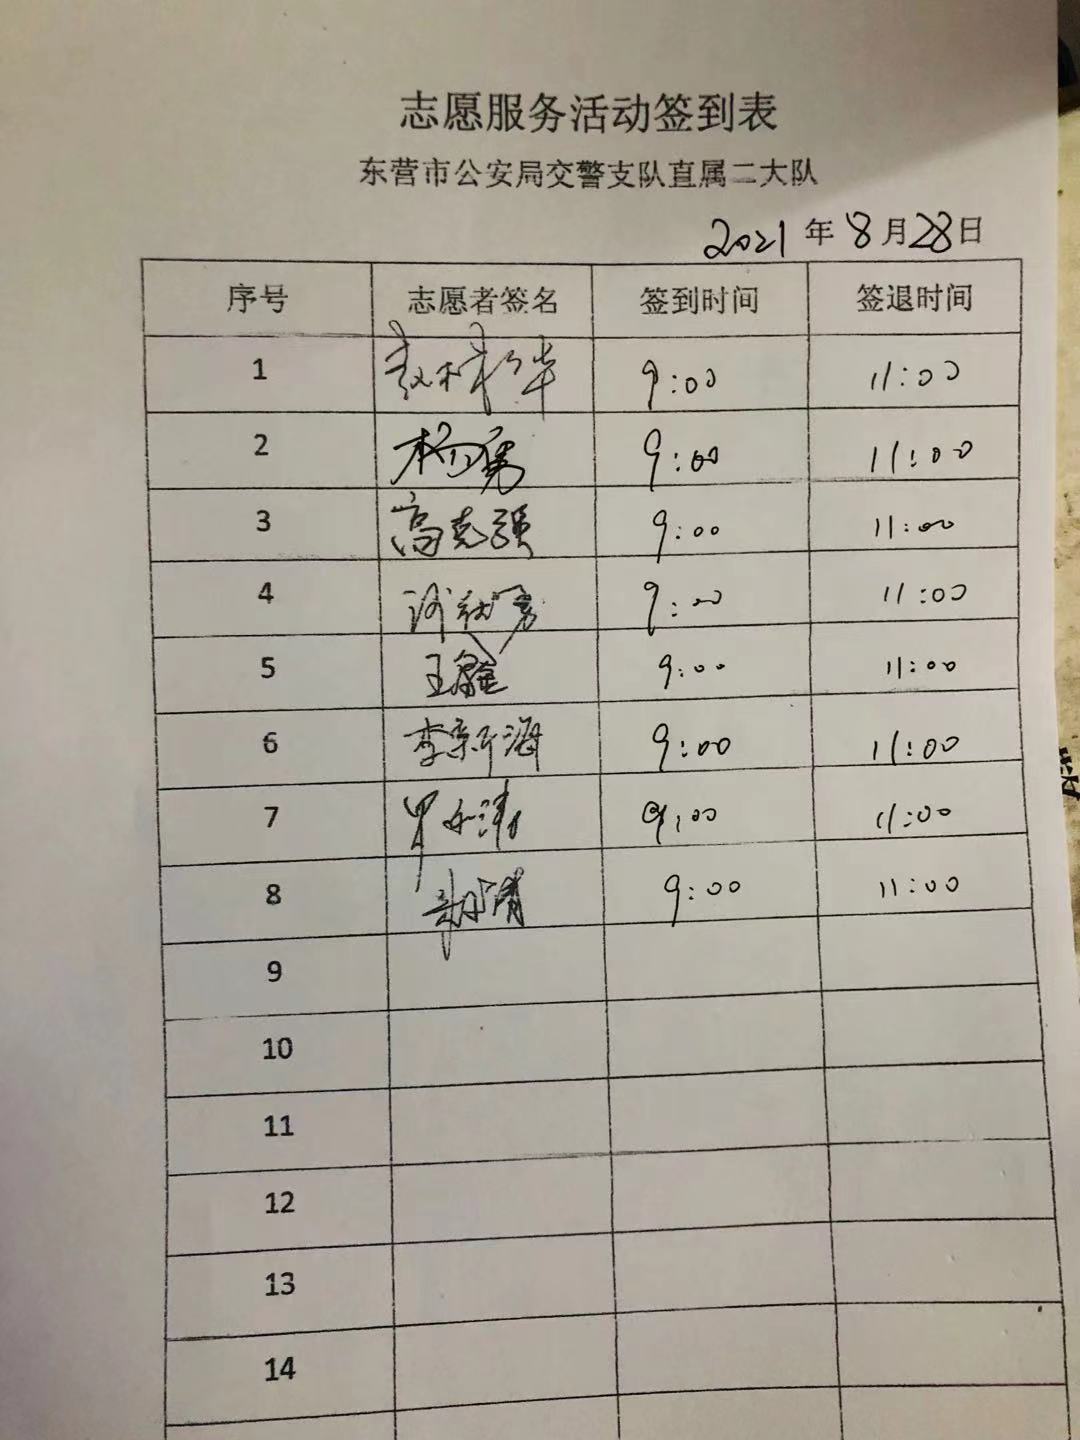 志愿服务活动签到表
东营市公安局交警支队直属二大队
2021年8月28日
序号 志愿者签名 签到时间 签退时间
1 9:00 11:00
2 杨勇 9:00 11:00
3 高克强 9:00 11:00
4 9:00 11:00
5 王鑫 9:00 11:00
6 李新海 9:00 11:00
7 9:00 11:00
8 9:00 11:00
9
10
11
12
13
14